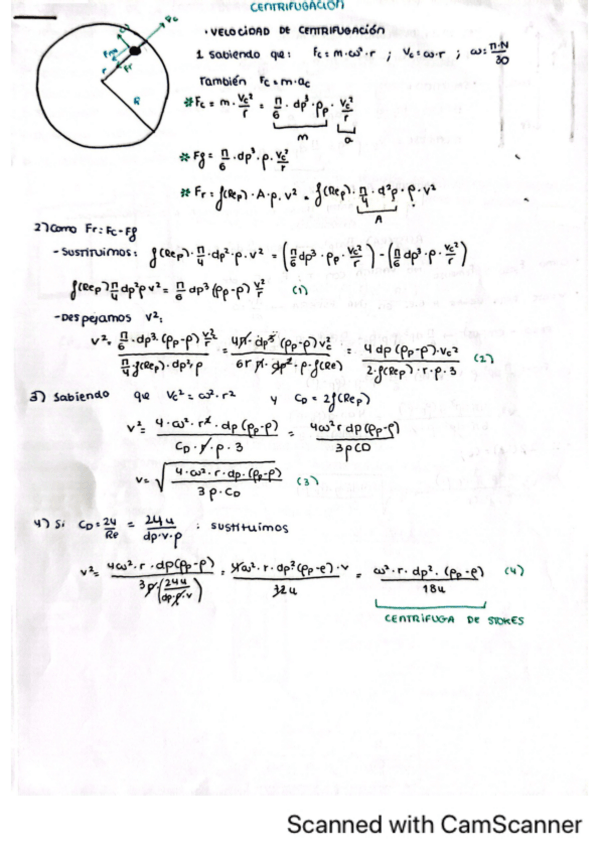 CENTRIFUGACIÓN
• VELOCIDAD DE CENTRIFUGACIÓN
1 Sabiendo que: Fc = m·ω²·r ; Vc = ω·r ; ω = π·N/30
También Fc = m·ac
* Fc = m · Vc²/r = π/6 · dp³ · ρp · Vc²/r
m a
* Fg = π/6 · dp³ · ρ · Vc²/r
* Fr = f(Rep) · A · ρ · v² = f(Rep) · π/4 · d²p · ρ · v²
A
r Fr R Fc
2) Como Fr = Fc - Fg
- Sustituimos: f(Rep) · π/4 · dp² · ρ · v² = (π/6 dp³ · ρp · Vc²/r) - (π/6 dp³ · ρ · Vc²/r)
f(Rep) π/4 dp² ρ v² = π/6 dp³ (ρp-ρ) Vc²/r (1)
- Despejamos v²:
v² = π/6 · dp³ · (ρp-ρ) Vc²/r / π/4 f(Rep) · dp² · ρ = 4π · dp³ (ρp-ρ) Vc² / 6 r π · dp² · ρ · f(Re) = 4 dp (ρp-ρ) · Vc² / 2 · f(Rep) · r · ρ · 3 (2)
3) Sabiendo que Vc² = ω² · r² y CD = 2f(Rep)
v² = 4 · ω² · r² · dp (ρp-ρ) / CD · r · ρ · 3 = 4ω² r dp (ρp-ρ) / 3ρCD
v = √ 4 · ω² · r · dp · (ρp-ρ) / 3 ρ · CD (3)
4) Si CD = 24/Re = 24μ / dp · v · ρ : sustituimos
v² = 4ω² · r · dp (ρp-ρ) / 3ρ · (24μ / dp · ρ · v) = 4ω² · r · dp² (ρp-ρ) · v / 72μ = ω² · r · dp² · (ρp-ρ) / 18μ (4)
CENTRÍFUGA DE STOKES
Scanned with CamScanner